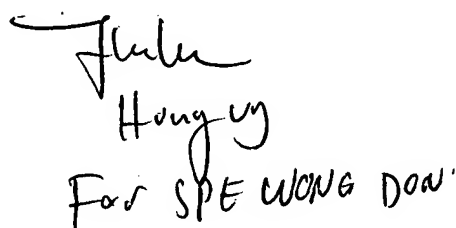 Hung vy
For SPE WONG DON